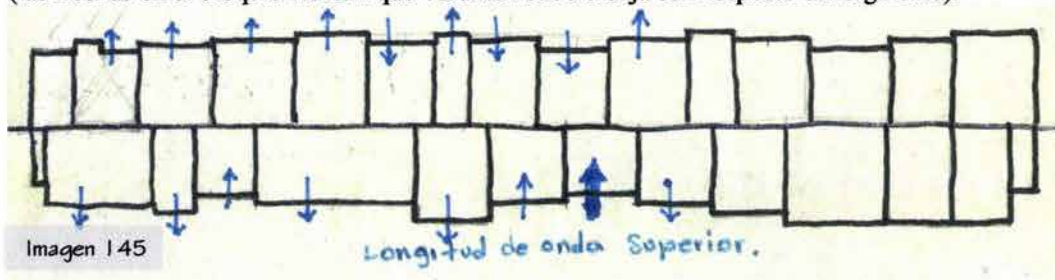 Imagen 145
Longitud de onda Superior.